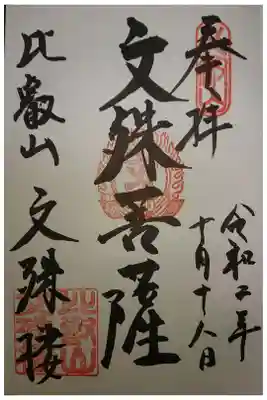 奉拝
令和二年
十月十八日
文殊菩薩
比叡山 文殊楼